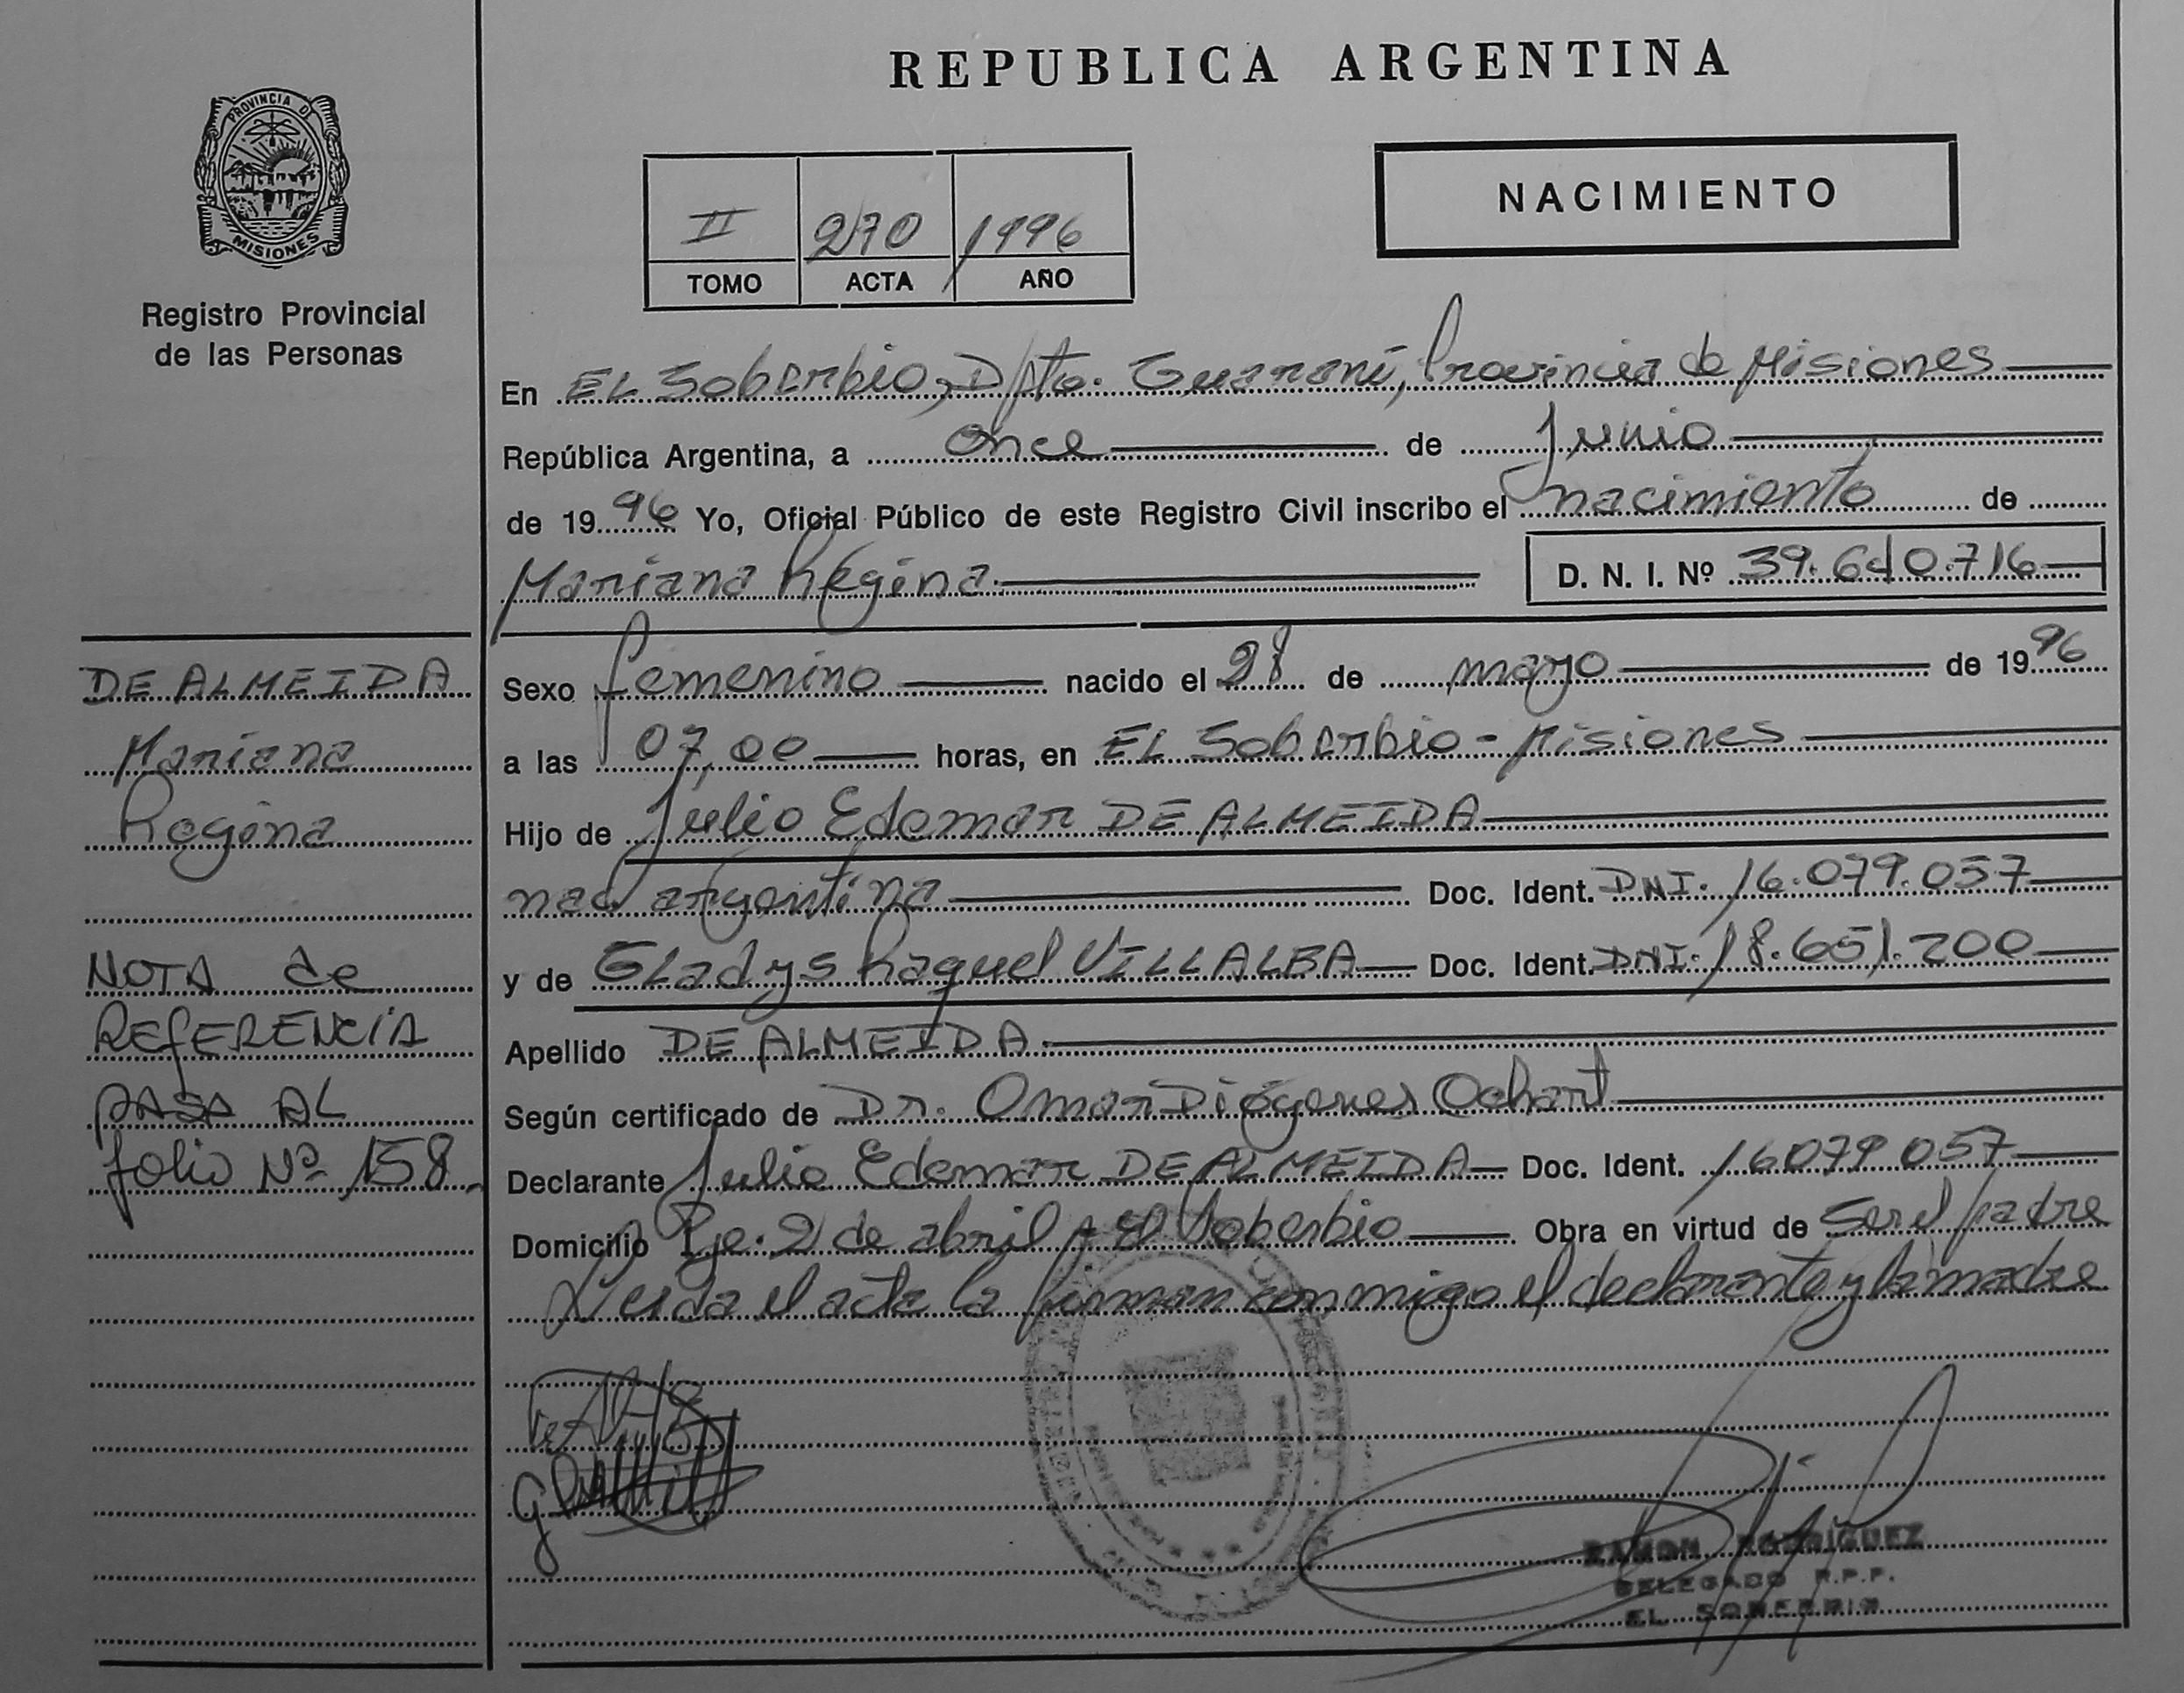 REPUBLICA ARGENTINA
PROVINCIA DE
MISIONES
Registro Provincial
de las Personas
II 270 1996
TOMO ACTA AÑO
NACIMIENTO
En EL Soberbio, Dpto. Guaraní, Provincia de Misiones
República Argentina, a once de Junio
de 1996 Yo, Oficial Público de este Registro Civil inscribo el nacimiento de
Mariana Regina
D. N. I. Nº 39.640.716
Sexo femenino nacido el 28 de mayo de 1996
a las 07,00 horas, en EL Soberbio - Misiones
Hijo de Julio Edemar DE ALMEIDA
nac argentina Doc. Ident. DNI. 16.079.057
y de Gladys Raquel VILLALBA Doc. Ident. DNI. 18.651.200
Apellido DE ALMEIDA
Según certificado de Dr. Omar Diógenes Ochart
Declarante Julio Edemar DE ALMEIDA Doc. Ident. 16079057
Domicilio Pje. 2 de abril - El Soberbio Obra en virtud de Ser el padre
Leida el acta la firman conmigo el declarante y la madre
DE ALMEIDA
Mariana
Regina
NOTA de
REFERENCIA
PASA AL
folio Nº 158
RAMON RODRIGUEZ
DELEGADO R.P.P.
EL SOBERBIO